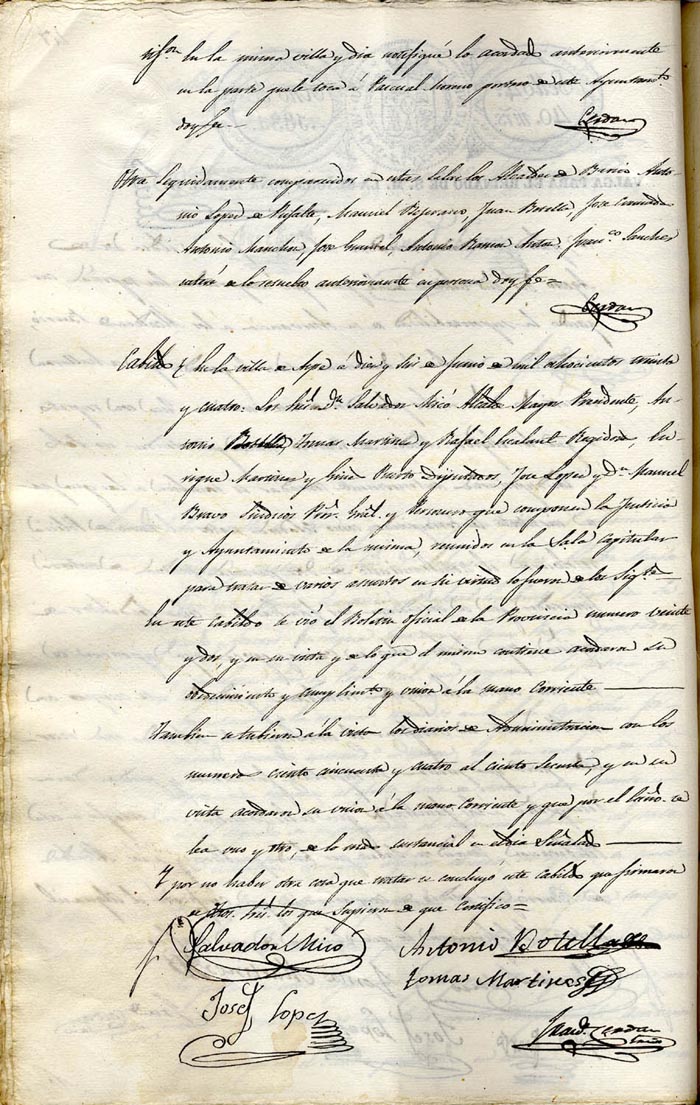 En la misma villa y dia notifiqué lo acordad anteriormente
en la parte que le toca á Pascual portero de este Ayuntam.to
doy fe =
Cerdan
Otra Seguidamente comparecidos en estas Salas los Alcaldes de Barrio Anto-
nio Lopez de Rufalta, Manuel Bejerano, Juan Botella, Jose
Antonio Manchon, Jose Antonio Ramon Fran.co Sanchez
enteré de lo resuelto anteriormente en persona doy fe =
Cerdan
Cabild En la villa de Aspe á diez y seis de Junio de mil ochocientos treinta
y cuatro: Los Sres. Dn. Salvador Micó Alcalde Mayor Presidente, An-
tonio Botella, Tomas Martinez y Rafael Regidores, En-
rique Martinez y Gines Puerto Diputados, Jose Lopez y Dn. Manuel
Bravo Sindicos Pror. Gral. y Personero que componen la Justicia
y Ayuntamiento de la misma, reunidos en la Sala capitular
para tratar de varios asuntos en su virtud lo fueron de los Sigtes.
En este cabildo se vió el Boletin oficial de la Provincia numero veinte
y dos, y en su vista y de lo que el mismo contiene acordaron su
obedecimiento y cumplimto y union á la mano corriente
Tambien se tubieron á la vista los diarios de Administracion con los
numeros ciento cincuenta y cuatro al ciento sesenta, y en su
vista acordaron su union á la mano corriente y que por el se
lea uno y otro, de lo mas sustancial en el dia Señalado
Y por no haber otra cosa que tratar se concluyó este cabildo que firmaron
dhos. Sres. los que Supieron de que Certifico =
Salvador Micó Antonio Botella
Tomas Martines
Josef Lopez
Cerdan